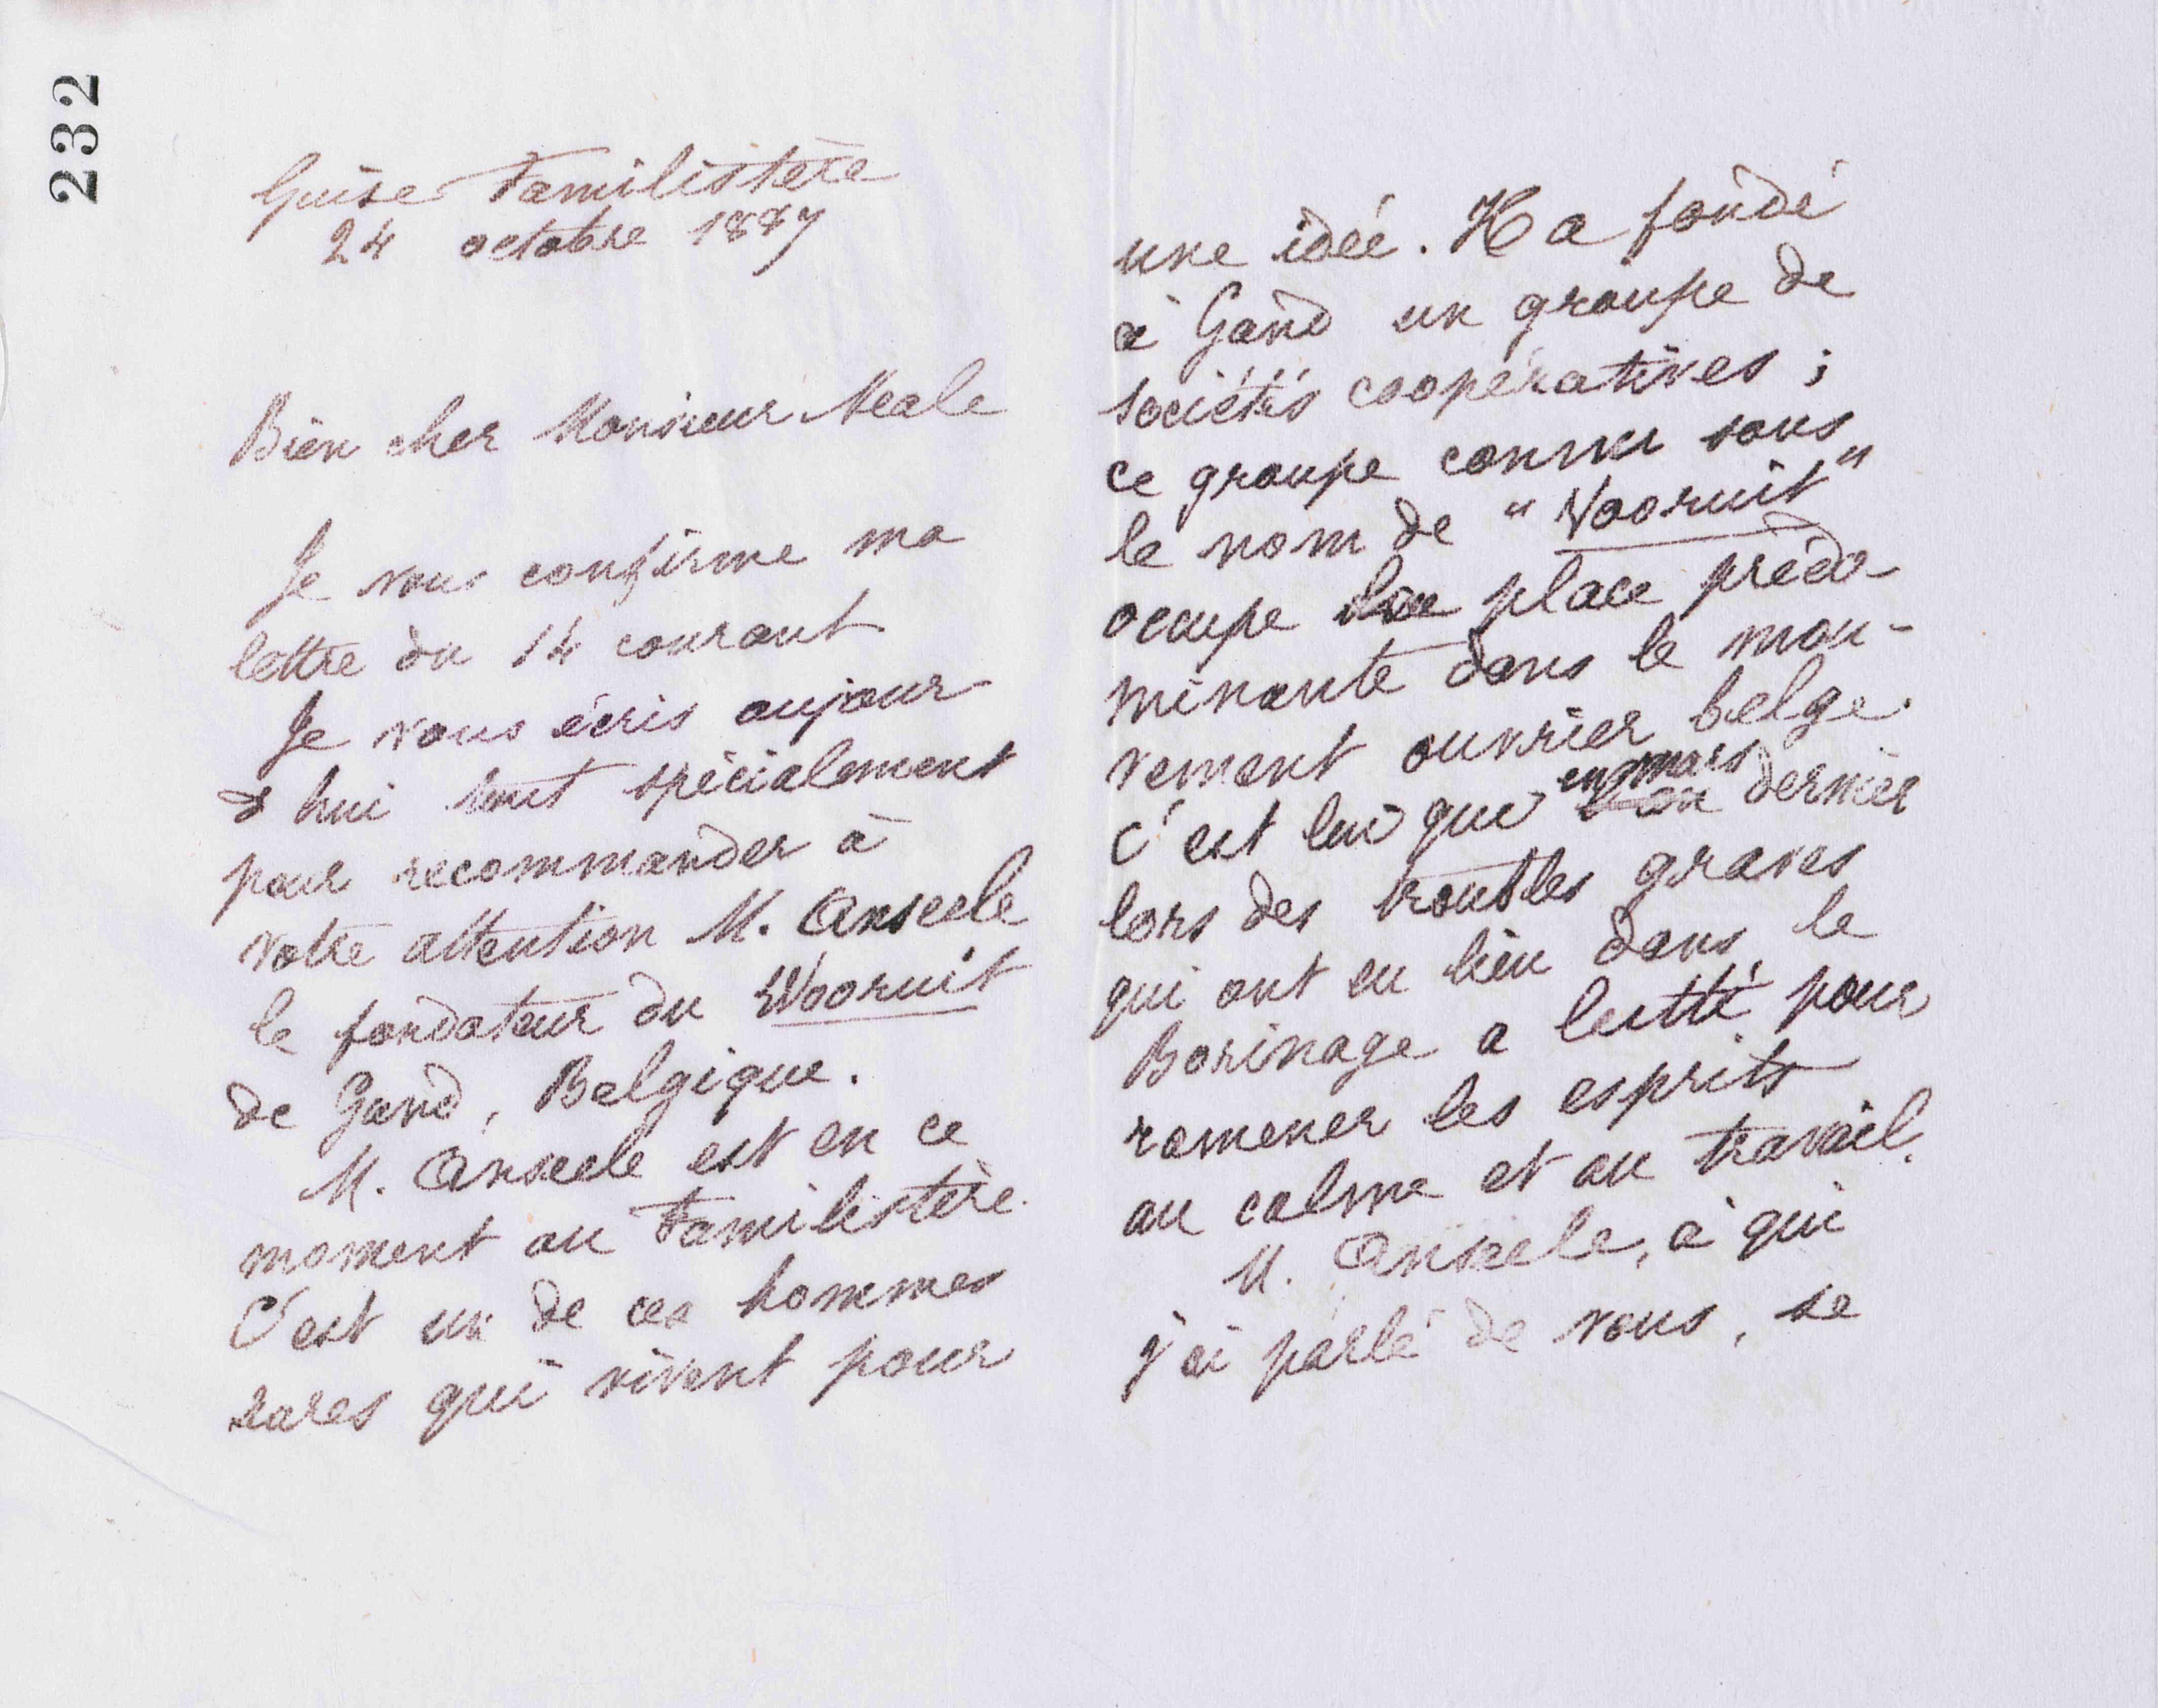 232
Guise Familistère
24 octobre 1887
Bien cher Monsieur Neale
Je vous confirme ma
lettre du 14 courant
Je vous écris aujour
d'hui tout spécialement
pour recommander à
votre attention M. Anseele
le fondateur du Vooruit
de Gand, Belgique.
M. Anseele est en ce
moment au Familistère.
C'est un de ces hommes
rares qui vivent pour
une idée. Il a fondé
à Gand un groupe de
sociétés coopératives ;
ce groupe connu sous
le nom de "Vooruit"
occupe une place prédo
minante dans le mou-
vement ouvrier belge.
C'est lui qui en mars dernier
lors des troubles graves
qui ont eu lieu dans le
Borinage a lutté pour
ramener les esprits
au calme et au travail.
M. Anseele, à qui
j'ai parlé de vous, se